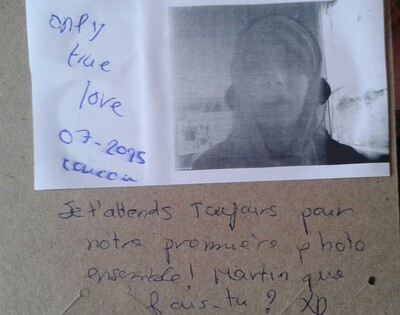 only
true
love
07-2015
coucou
Je t'attends Toujours pour
notre première photo
ensemble! Martin que
fais-tu ? XD